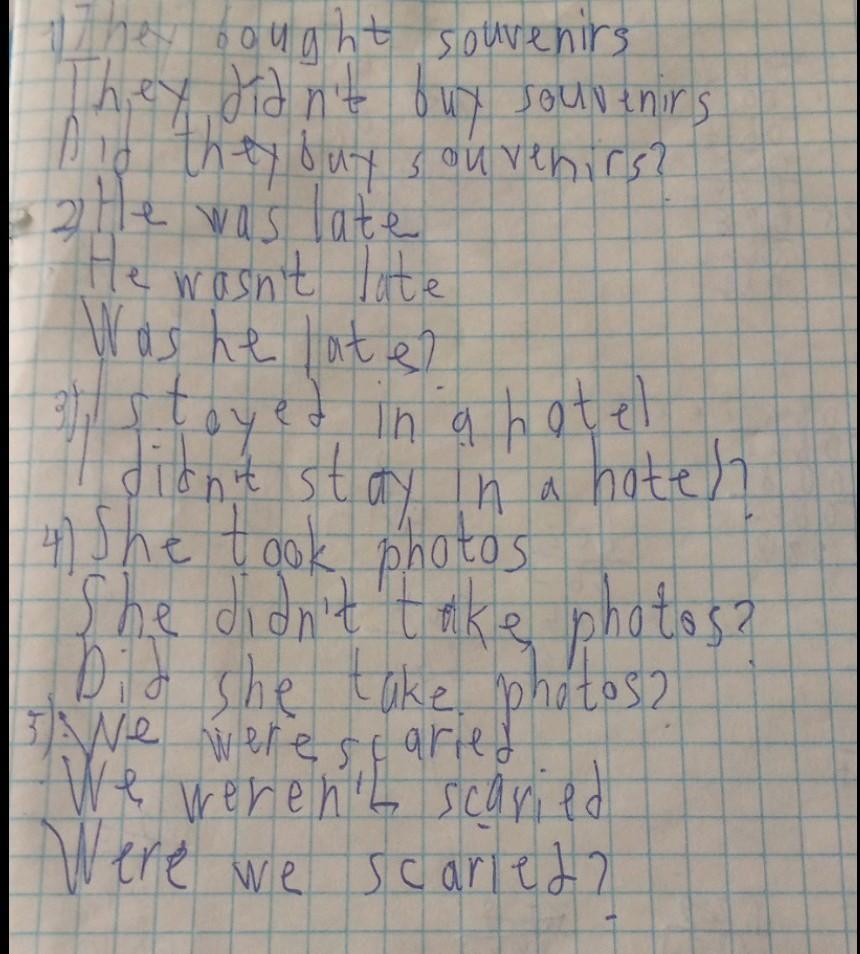 1) They bought souvenirs
They didn't buy souvenirs
Did they buy souvenirs?
2) He was late
He wasn't late
Was he late?
3) I stayed in a hotel
I didn't stay in a hotel?
4) She took photos
She didn't take photos?
Did she take photos?
5) We were scaried
We weren't scaried
Were we scaried?